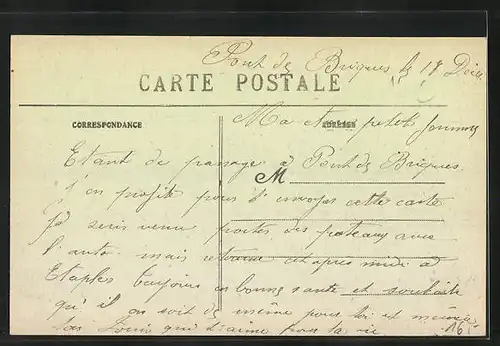 Pont de Briques le 18 Déc
CARTE POSTALE
CORRESPONDANCE
ADRESSE
Ma chere petite
Etant de passage à Pont de Briques
M
j'en profite pour t'envoyer cette carte
Je suis venu porter des poteaux avec
l'auto mais retourne cet apres midi à
Etaples toujours en bonne santé et souhaite
qu'il en soit de même pour toi et
ton Louis qui t'aime pour la vie
16